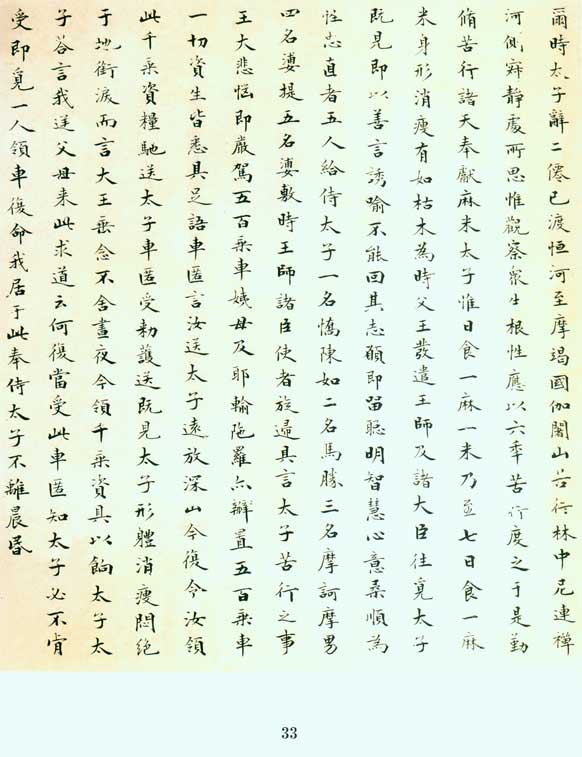 爾時太子辭二僊已渡恒河至摩竭國伽闍山苦行林中尼連禪
河側寂静處所思惟觀察衆生根性應以六年苦行度之于是勤
脩苦行諸天奉獻麻米太子惟日食一麻一米乃至七日食一麻
米身形消瘦有如枯木爲時父王發遣王師及諸大臣往覓太子
既見即以善言誘喻不能回其志願即留聰明智慧心意柔順爲
性忠直者五人給侍太子一名憍陳如二名馬勝三名摩訶摩男
四名婆提五名婆敷時王師諸臣使者旋還具言太子苦行之事
王大悲惱即嚴駕五百乘車姨母及耶輸陁羅亦辦置五百乘車
一切資生皆悉具足語車匿言汝送太子遠放深山今復令汝領
此千乘資糧馳送太子車匿受勑護送既見太子形體消瘦悶絶
于地銜淚而言大王垂念不舍晝夜今領千乘資具以餉太子太
子答言我送父母来此求道云何復當受此車匿知太子必不肯
受即覓一人領車復命我居于此奉侍太子不離晨昏
33